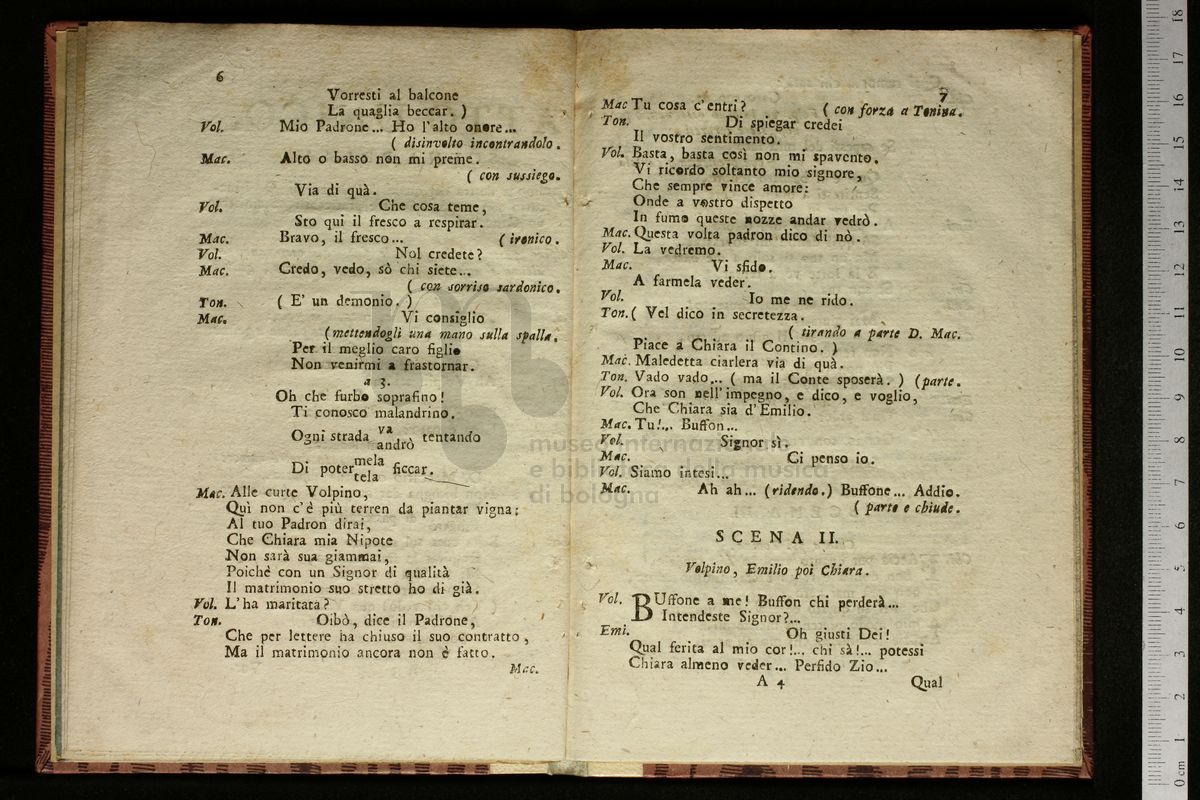 6
Vorresti al balcone
La quaglia beccar. )
Vol. Mio Padrone... Ho l'alto onore...
( disinvolto incontrandolo.
Mac. Alto o basso non mi preme.
( con sussiego.
Via di quà.
Vol. Che cosa teme,
Sto qui il fresco a respirar.
Mac. Bravo, il fresco... ( ironico.
Vol. Nol credete?
Mac. Credo, vedo, sò chi siete...
( con sorriso sardonico.
Ton. ( E' un demonio. )
Mac. Vi consiglio
( mettendogli una mano sulla spalla.
Per il meglio caro figlio
Non venirmi a frastornar.
a 3.
Oh che furbo soprafino!
Ti conosco malandrino.
Ogni strada va andrò tentando
Di poter mela tela ficcar.
Mac. Alle curte Volpino,
Quì non c'è più terren da piantar vigna;
Al tuo Padron dirai,
Che Chiara mia Nipote
Non sarà sua giammai,
Poichè con un Signor di qualità
Il matrimonio suo stretto ho di già.
Vol. L'ha maritata?
Ton. Oibò, dice il Padrone,
Che per lettere ha chiuso il suo contratto,
Ma il matrimonio ancora non è fatto.
Mac.
7
Mac Tu cosa c'entri? ( con forza a Tonina.
Ton. Di spiegar credei
Il vostro sentimento.
Vol. Basta, basta così non mi spavento.
Vi ricordo soltanto mio signore,
Che sempre vince amore:
Onde a vostro dispetto
In fumo queste nozze andar vedrò.
Mac. Questa volta padron dico di nò.
Vol. La vedremo.
Mac. Vi sfido.
A farmela veder.
Vol. Io me ne rido.
Ton. ( Vel dico in secretezza.
( tirando a parte D. Mac.
Piace a Chiara il Contino. )
Mac. Maledetta ciarlera via di quà.
Ton. Vado vado... ( ma il Conte sposerà. ) (parte.
Vol. Ora son nell'impegno, e dico, e voglio,
Che Chiara sia d'Emilio.
Mac. Tu!... Buffon...
Vol. Signor sì.
Mac. Ci penso io.
Vol. Siamo intesi...
Mac. Ah ah... (ridendo.) Buffone... Addio.
( parte e chiude.
SCENA II.
Volpino, Emilio poi Chiara.
Vol. BUffone a me! Buffon chi perderà...
Intendeste Signor?...
Emi. Oh giusti Dei!
Qual ferita al mio cor!... chi sà!... potessi
Chiara almeno veder... Perfido Zio...
A 4 Qual
museo internazionale
e biblioteca della musica
di bologna
0 cm 1 2 3 4 5 6 7 8 9 10 11 12 13 14 15 16 17 18